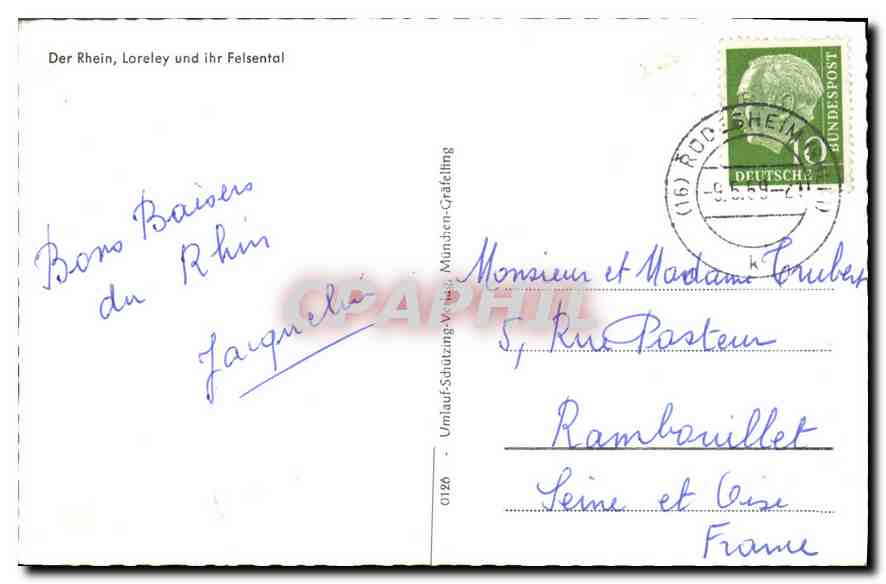 Der Rhein, Loreley und ihr Felsental
Bons Baisers
du Rhin
Jacqueline
0126 · Umlauf-Schützing-Verlag, München-Gräfelfing
DEUTSCHE
BUNDESPOST
10
(16) RÜDESHEIM
k
Monsieur et Madame Trubert
5, Rue Pasteur
Rambouillet
Seine et Oise
France
CPAPHIL